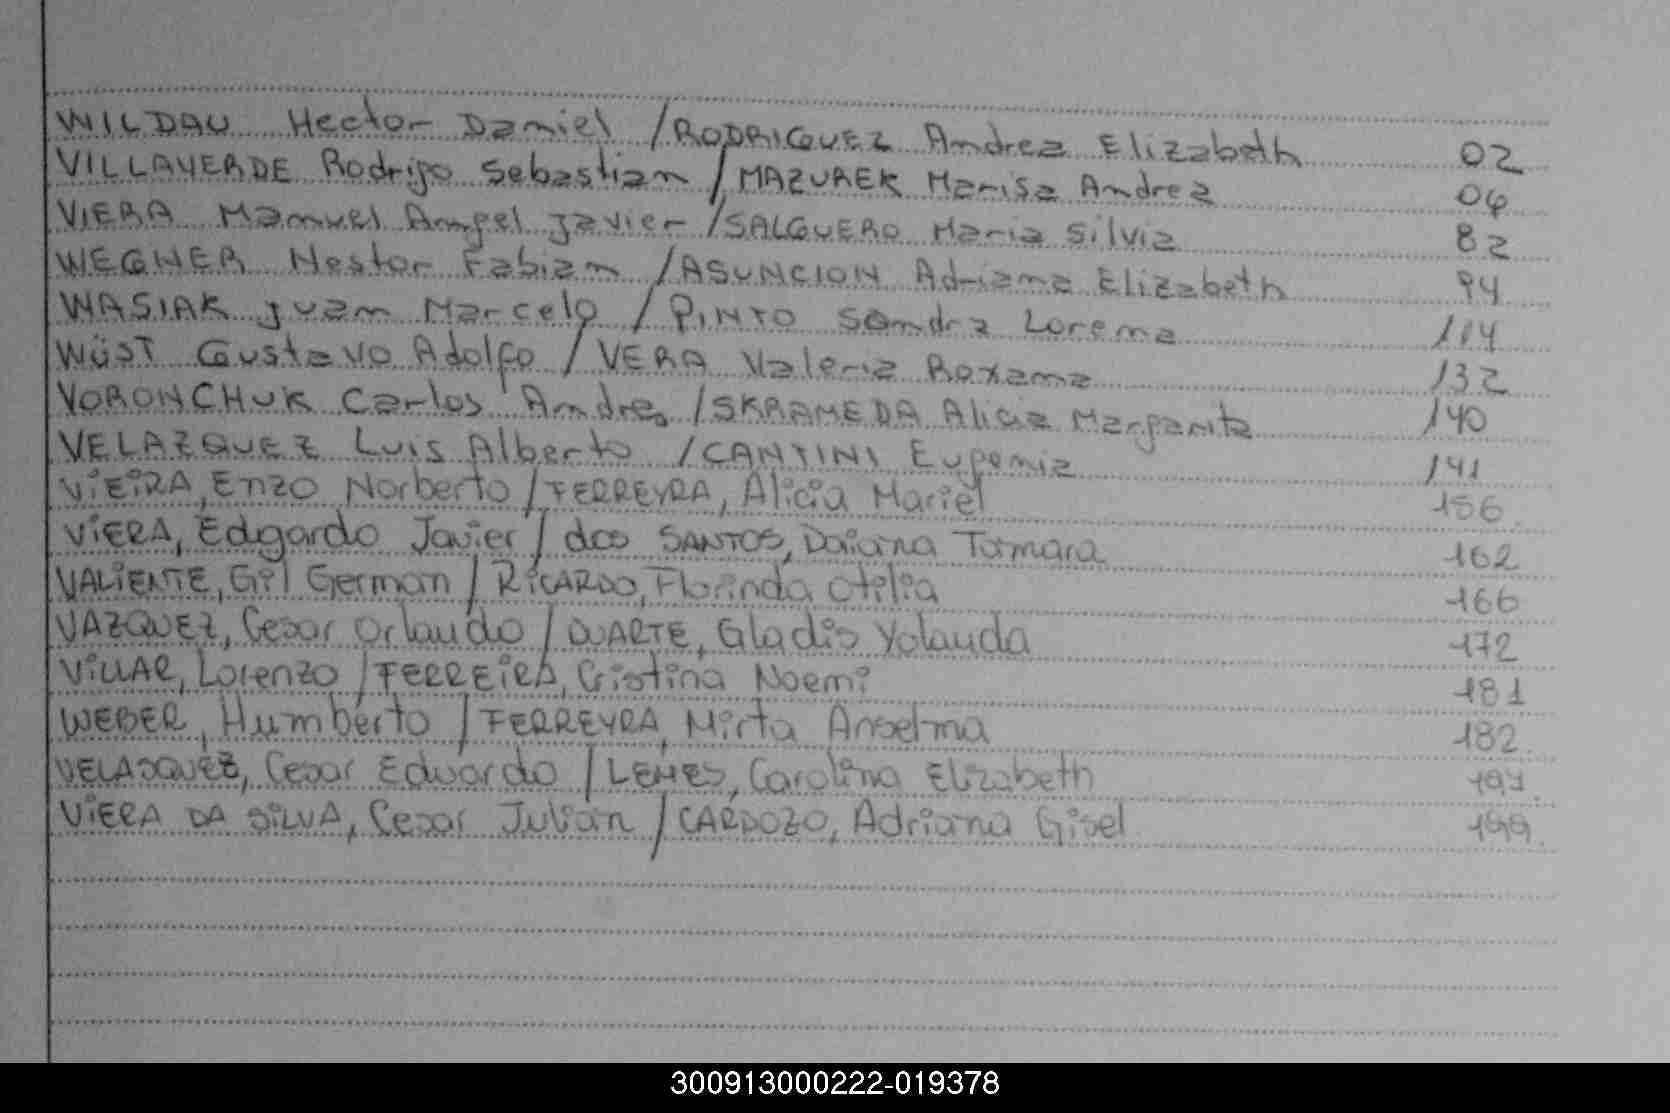 WILDAU Hector Daniel / RODRIGUEZ Andrea Elizabeth 02
VILLAVERDE Rodrigo Sebastian / MAZUREK Marisa Andrea 04
VIERA Manuel Angel Javier / SALGUERO Maria Silvia 82
WEGNER Nestor Fabian / ASUNCION Adriana Elizabeth 94
WASIAK Juan Marcelo / PINTO Sandra Lorena 114
WÜST Gustavo Adolfo / VERA Valeria Roxana 132
VORONCHUK Carlos Andres / SKRAMEDA Alicia Margarita 140
VELAZQUEZ Luis Alberto / CANTINI Eugenia 141
ViEiRA, Enzo Norberto / FERREYRA, Alicia Mariel 156
ViERA, Edgardo Javier / dos SANTOS, Daiana Tamara 162
VALiENTE, Gil German / RiCARDO, Florinda Otilia 166
VAZQUEZ, Cesar Orlando / DUARTE, Gladis Yolanda 172
ViLLAR, Lorenzo / FERREiRA, Cristina Noemi 181
WEBER, Humberto / FERREYRA, Mirta Anselma 182
VELASQUEZ, Cesar Eduardo / LEMES, Carolina Elizabeth 197
ViERA DA SiLVA, Cesar Julian / CARDOZO, Adriana Gisel 199
300913000222-019378